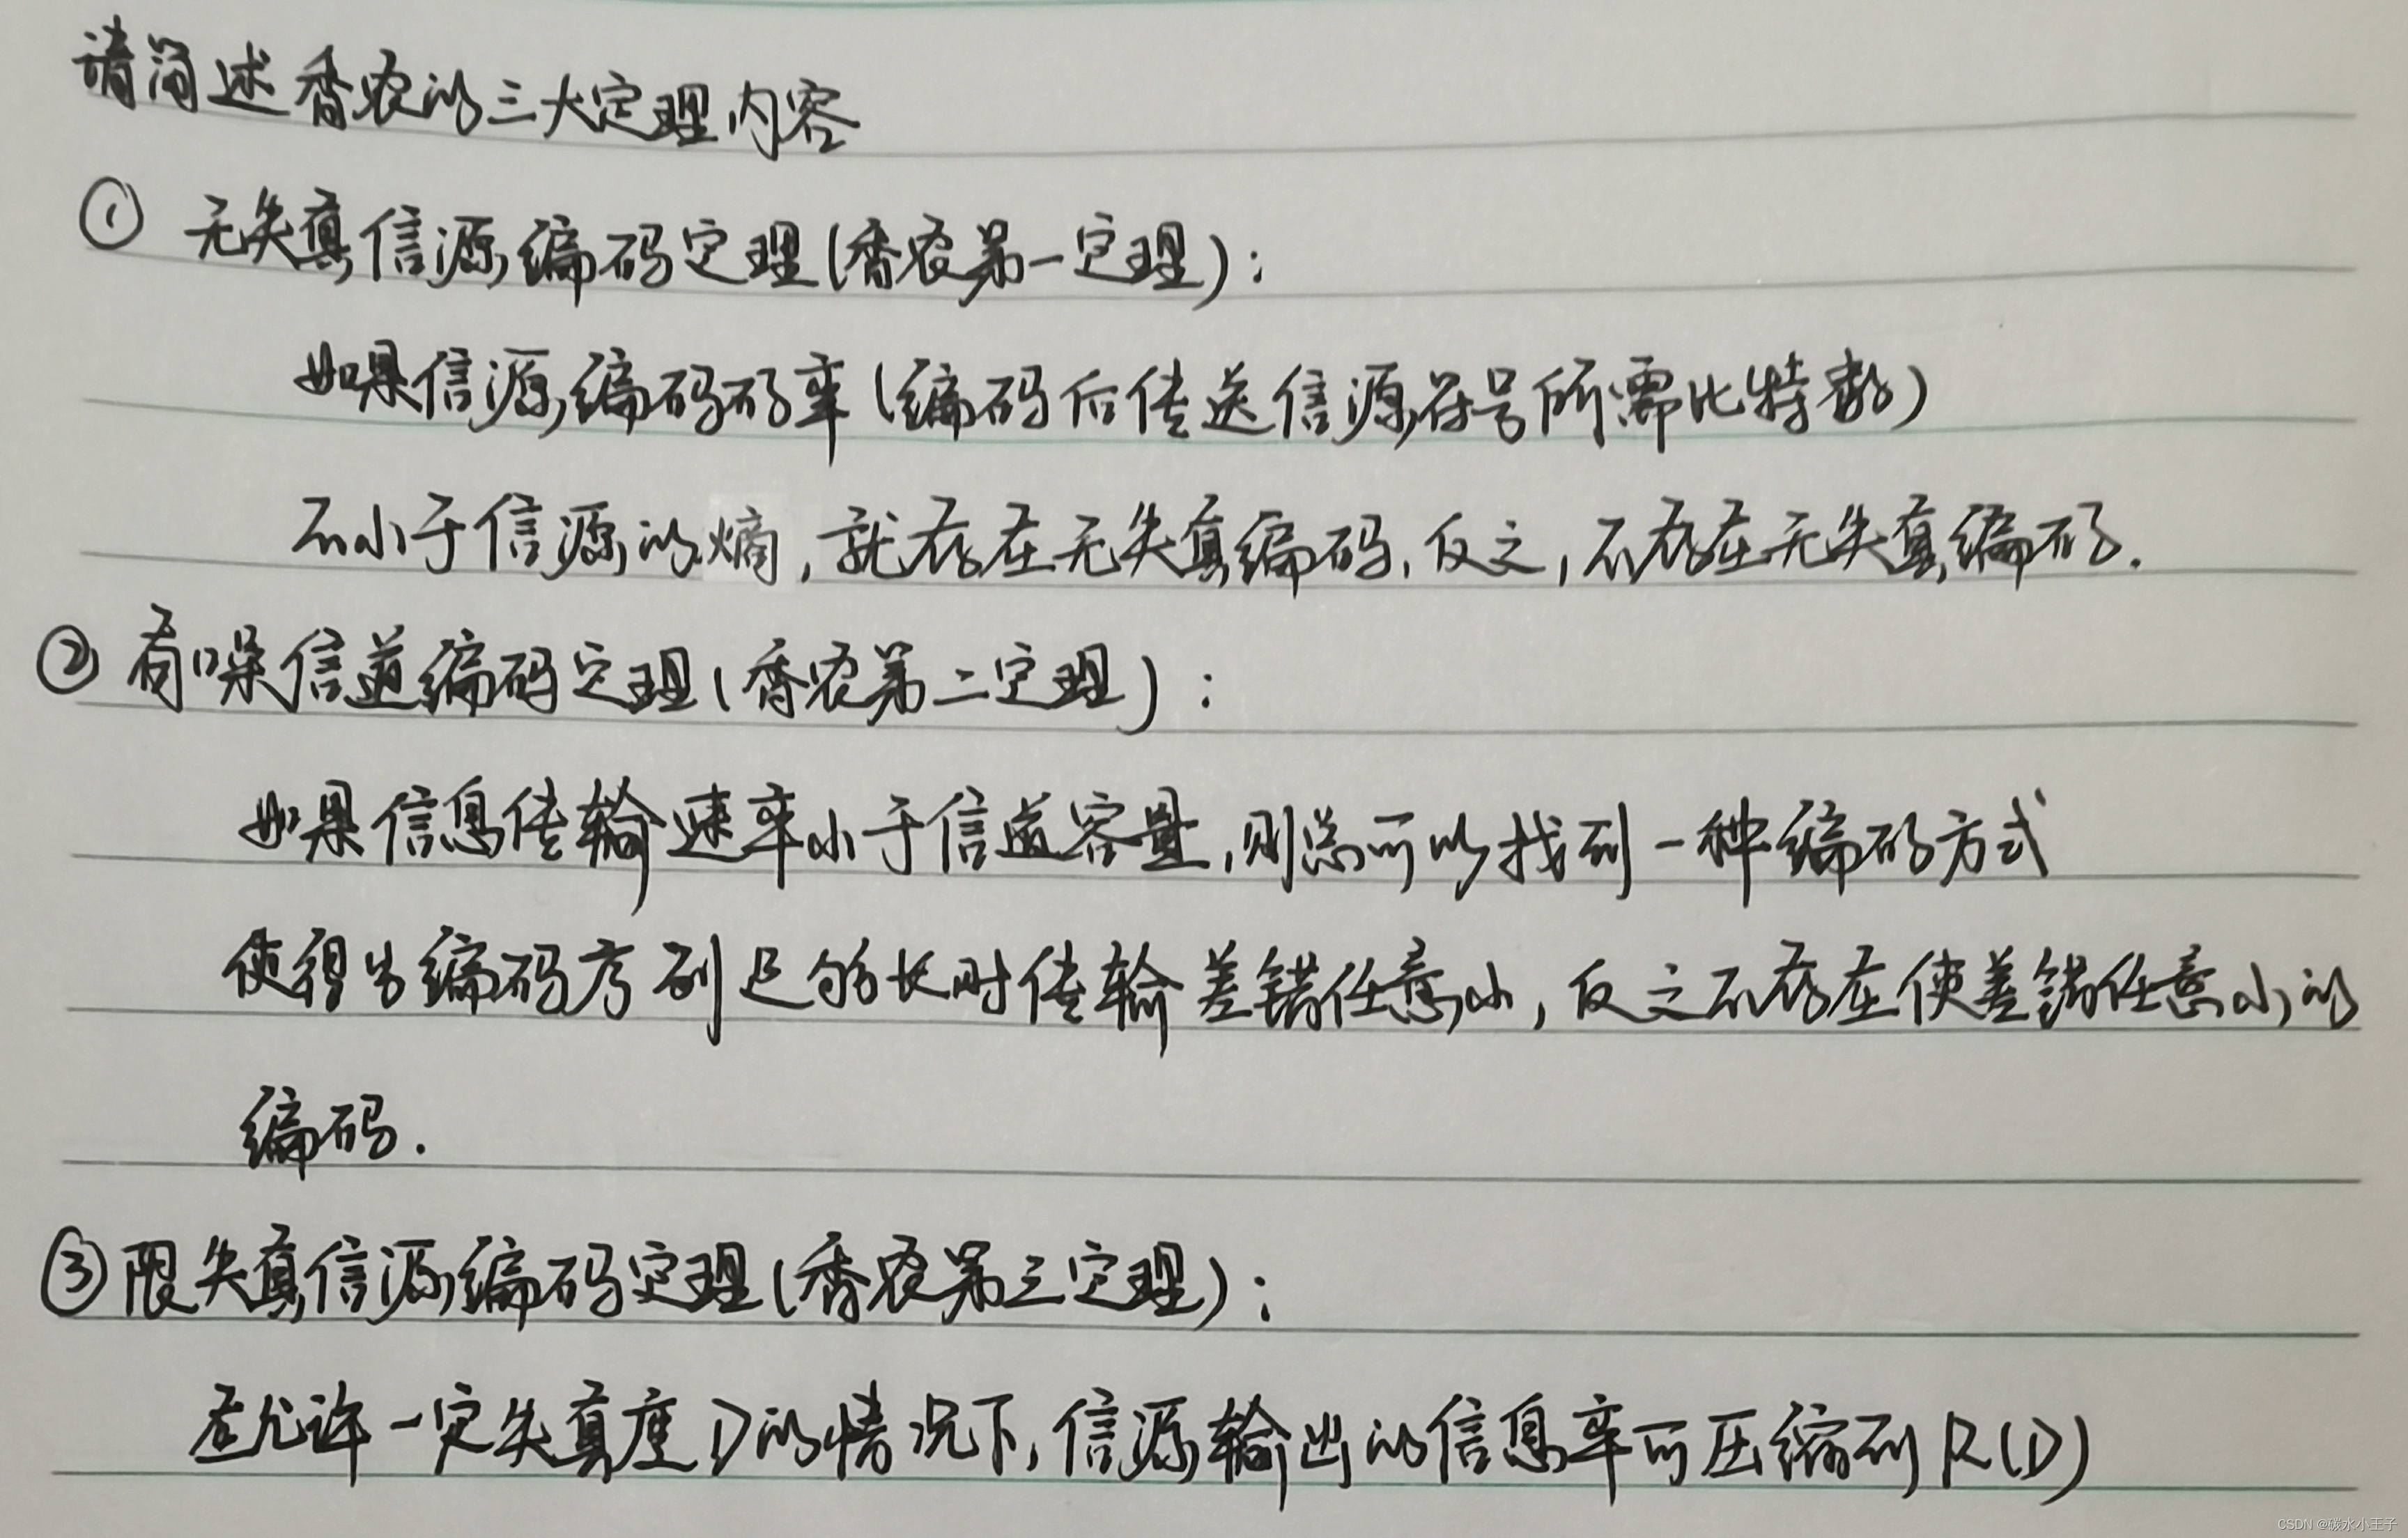 请简述香农的三大定理内容
① 无失真信源编码定理(香农第一定理):
如果信源编码码率(编码后传送信源符号所需比特数)
不小于信源的熵,就存在无失真编码,反之,不存在无失真编码.
② 有噪信道编码定理(香农第二定理):
如果信息传输速率小于信道容量,则总可以找到一种编码方式
使得当编码序列足够长时传输差错任意小,反之不存在使差错任意小的
编码.
③ 限失真信源编码定理(香农第三定理):
在允许一定失真度D的情况下,信源输出的信息率可压缩到R(D)
CSDN @碳水小王子